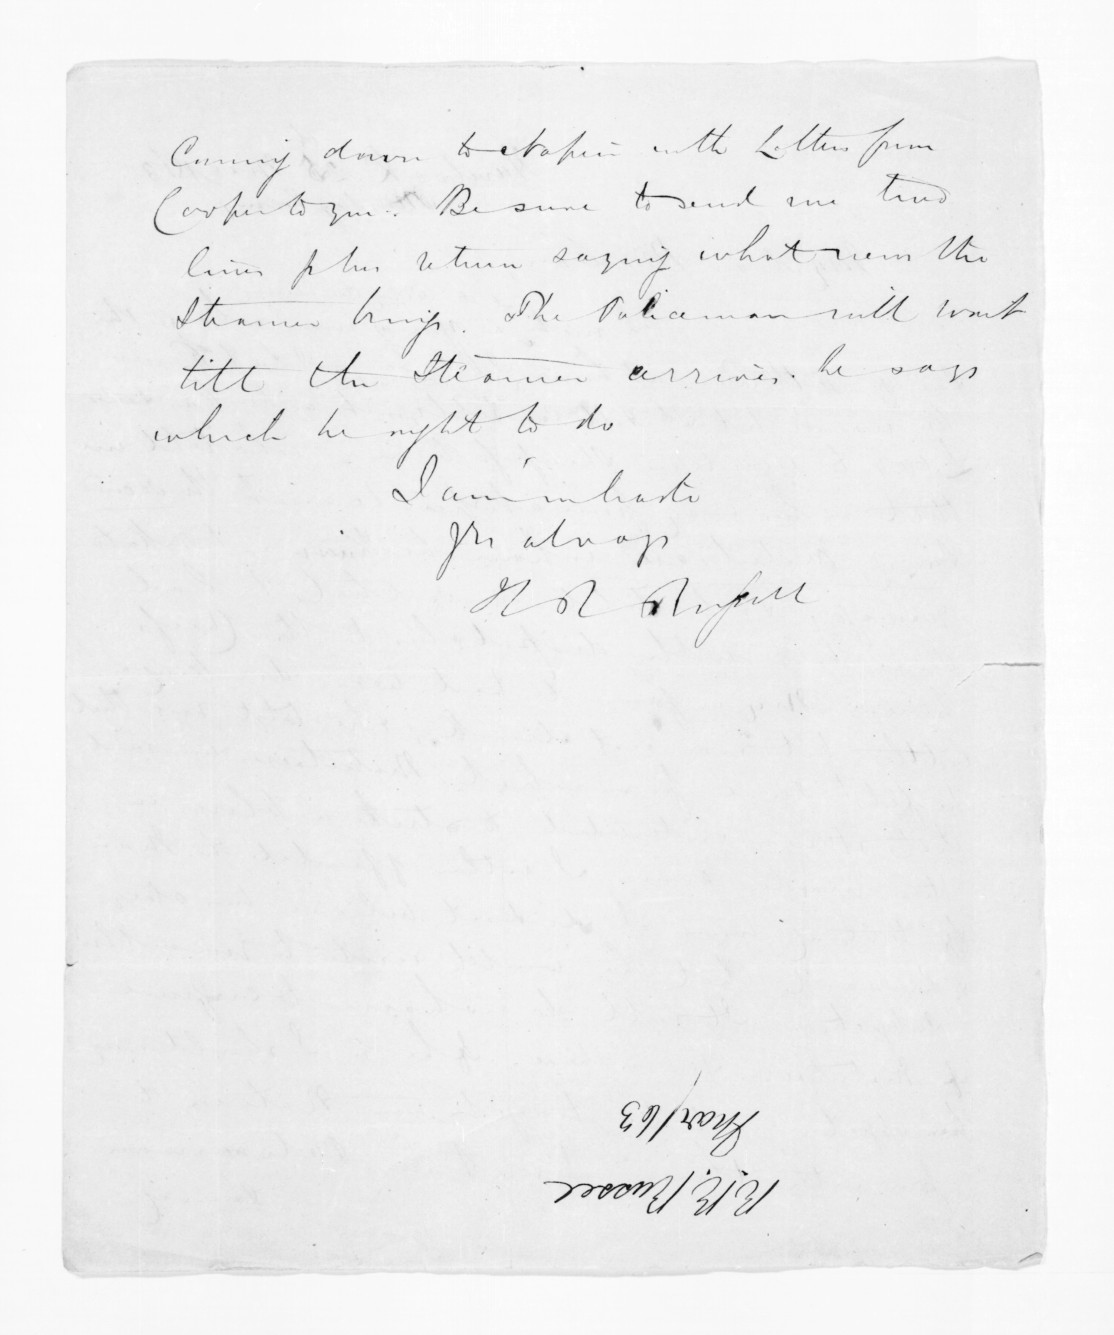 Coming down to Napier with Letters from
Cooper to you. Be sure to send me two
lines p his return saying what news the
Steamer brings. The Policeman will wait
till the Steamer arrives he says
which he ought to do
I am in haste
Yrs always
H R Russell
H. R. Russell
Mar/63